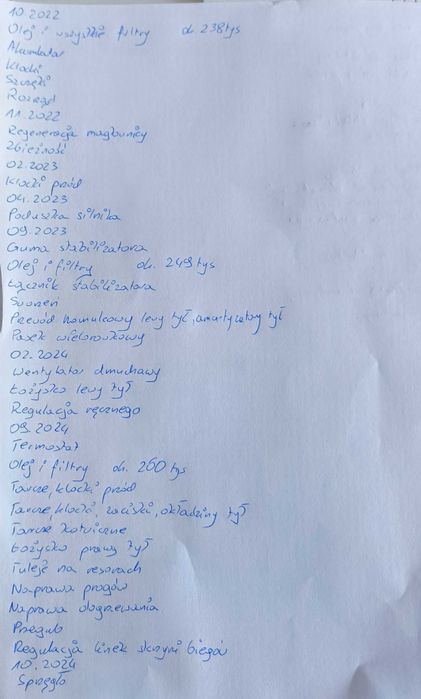 10.2022
Olej i wszystkie filtry ok. 238tys
Akumulator
Klocki
Szczęki
Rozrząd
11.2022
Regeneracja maglownicy
Zbieżność
02.2023
Klocki przód
04.2023
Poduszka silnika
09.2023
Guma stabilizatora
Olej i filtry ok. 249tys
Łącznik stabilizatora
Sworzeń
Przewód hamulcowy lewy tył, amortyzatory tył
Pasek wielorowkowy
02.2024
Wentylator dmuchawy
Łożysko lewy tył
Regulacja ręcznego
09.2024
Termostat
Olej i filtry ok. 260tys
Tarcze, klocki przód
Tarcze, klocki, zaciski, okładziny tył
Tarcze kotwiczne
Łożysko prawy tył
Tuleje na resorach
Naprawa progów
Naprawa ogrzewania
Przegub
Regulacja linek skrzyni biegów
10.2024
Sprzęgło